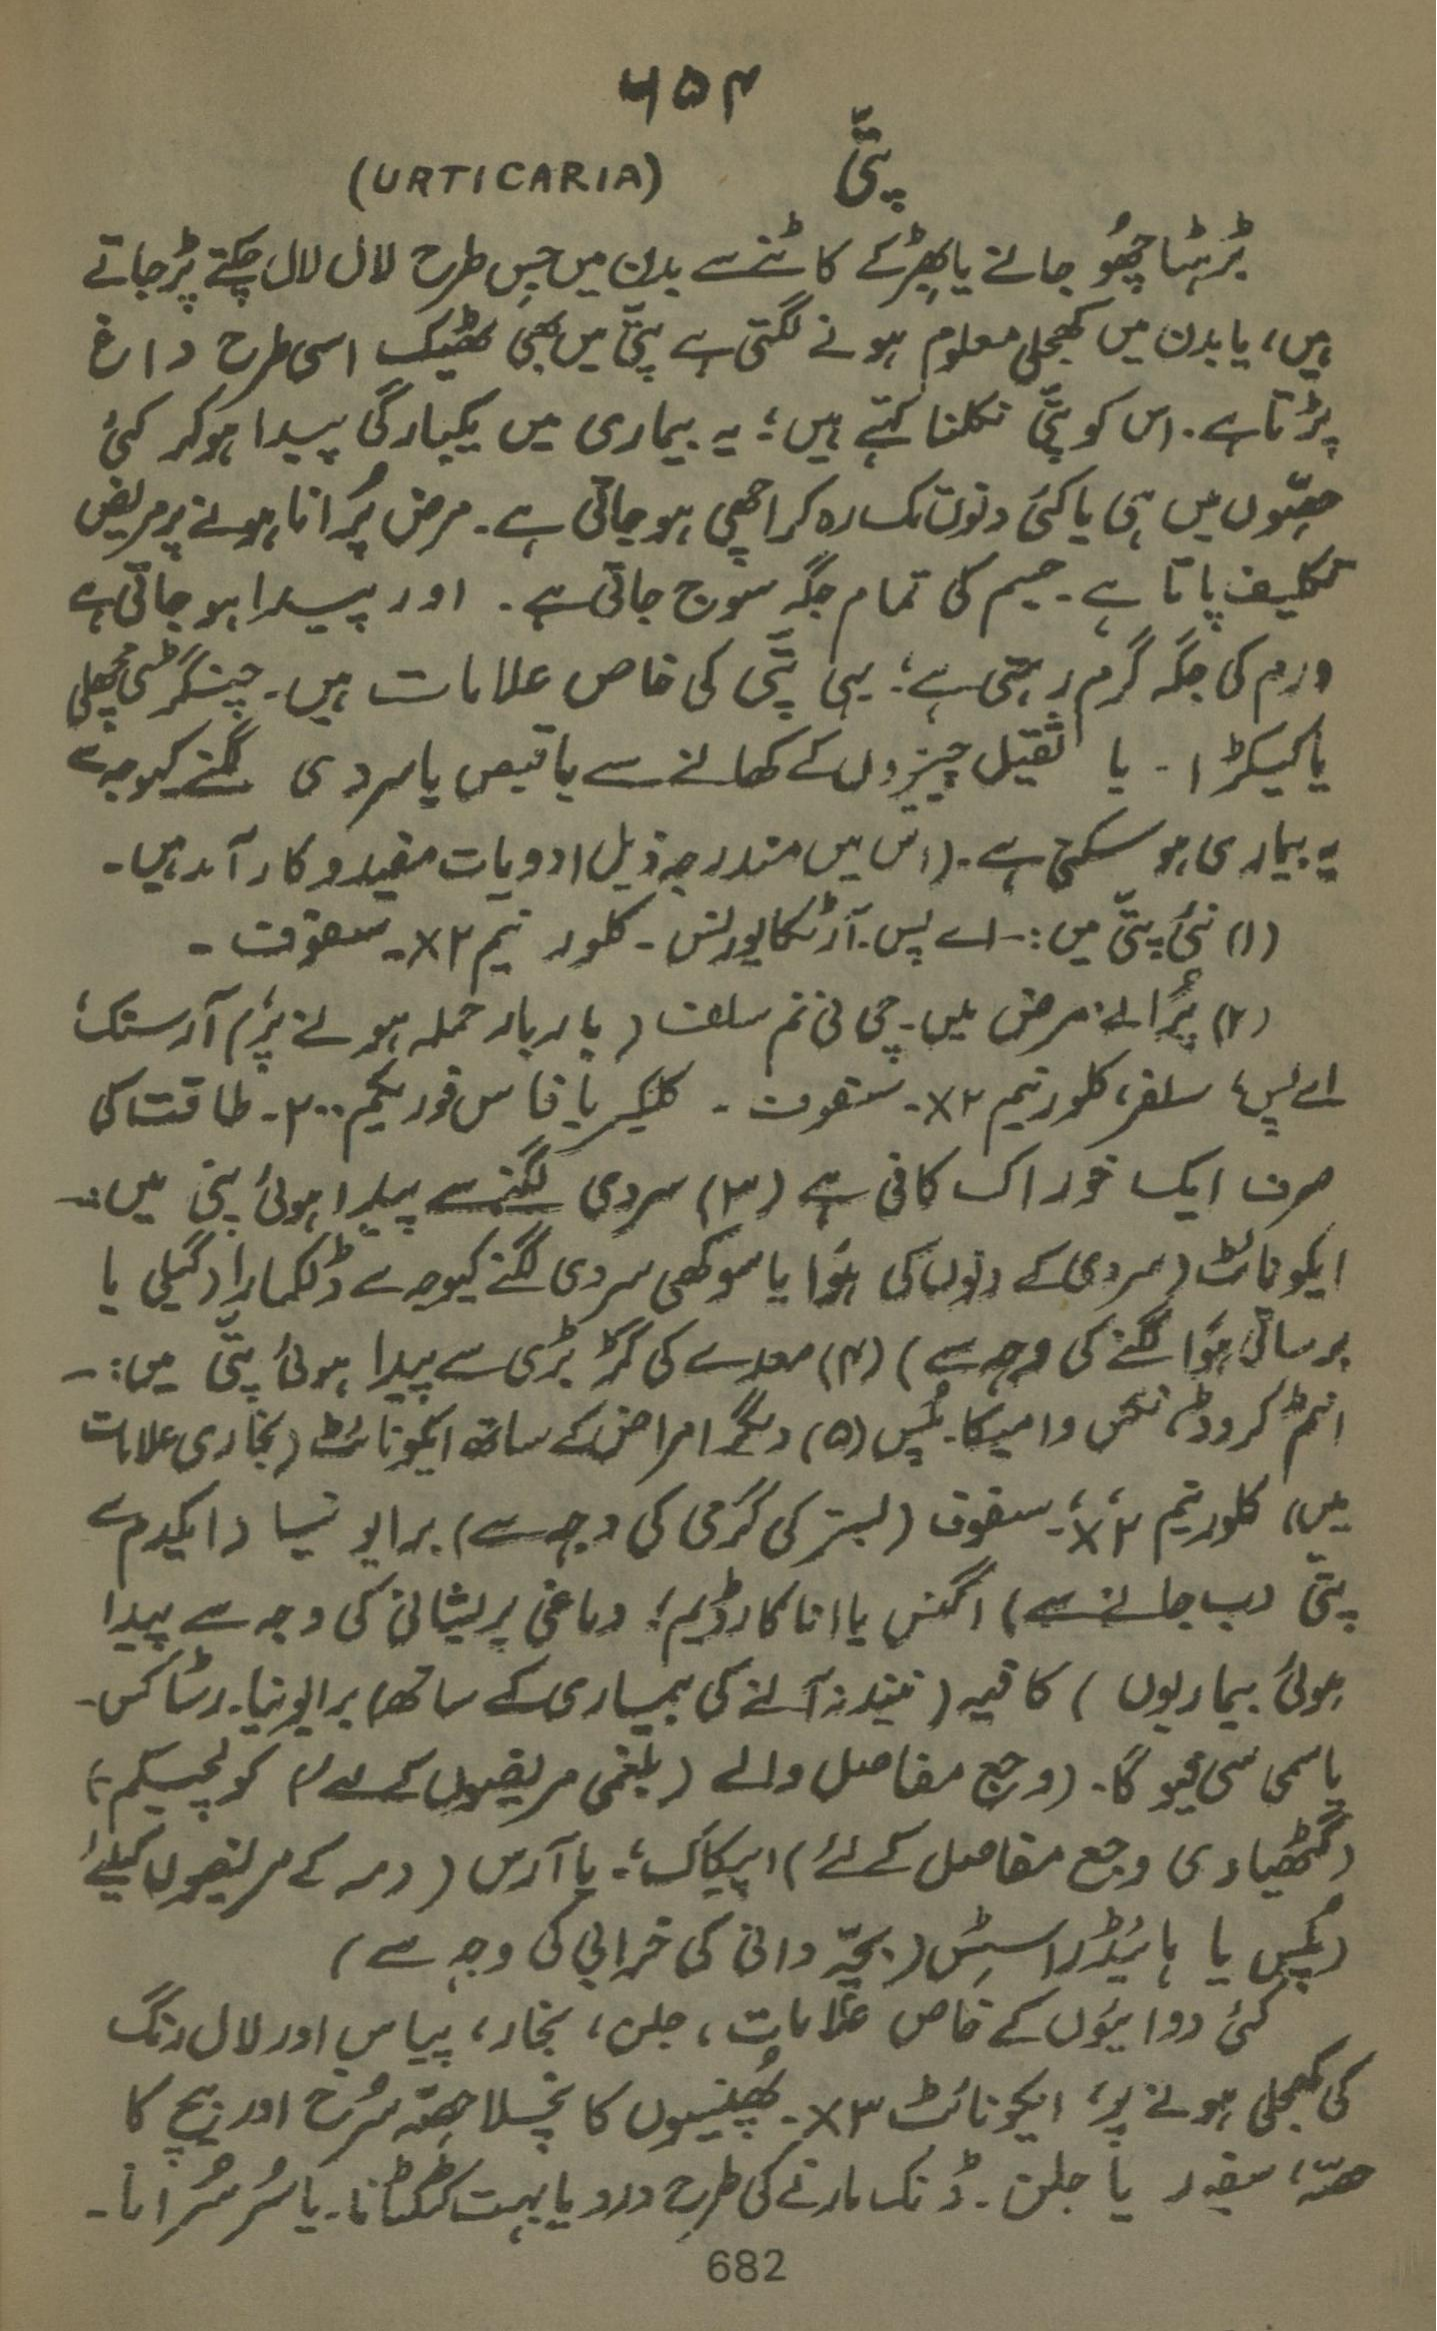 ۶۵۴
پتّی (URTICARIA)
بڑہٹا چھُو جانے یا بھِڑ کے کاٹنے سے بدن میں جس طرح لال لال چکتے پڑ جاتے
ہیں، یا بدن میں کھجلی معلوم ہونے لگتی ہے پتّی میں بھی ٹھیک اسی طرح داغ
پڑتا ہے۔ اس کو پتّی نکلنا کہتے ہیں؛ یہ بیماری میں یکبارگی پیدا ہوکر کئی
حصّوں میں ہی یا کئی دنوں تک رہ کر اچھی ہوجاتی ہے۔ مرض پُرانا ہونے پر مریض
تکلیف پاتا ہے۔ جسم کی تمام جگہ سوج جاتی ہے۔ اور پیدا ہو جاتی ہے
ورم کی جگہ گرم رہتی ہے؛ یہی پتّی کی خاص علامات ہیں۔ چینگڑی مچھلی
یا کیکڑا۔ یا ثقیل چیزوں کے کھانے سے یا قبض یا سردی لگنے کیوجہ سے
یہ بیماری ہو سکتی ہے۔ (اس میں مندرجہ ذیل ادویات مفید و کار آمد ہیں۔
(۱) نئی پتّی میں:۔ اے پس۔ آرٹیکا یورنس۔ کلور تیم ۲X۔ سفوف۔
(۲) پُرانے مرض میں۔ چی نی نم سلف (بار بار حملہ ہونے پر) آرسنک،
اے پس، سلفر، کلور تیم ۲X۔ سفوف۔ کلکیریا فاس فوریکم ۲۰۰۔ طاقت کی
صرف ایک خوراک کافی ہے (۳) سردی لگنے سے پیدا ہوئی پتی میں:۔
ایکونائٹ (سردی کے دنوں کی ہَوا یا سوکھی سردی لگنے کیوجہ سے ڈلکمارا (گیلی یا
برساتی ہَوا لگنے کی وجہ سے) (۴) معدے کی گڑ بڑی سے پیدا ہوئی پتّی میں:۔
انٹم کروڈ، نکس وامیکا۔ پلس (۵) دیگر امراض کے ساتھ ایکونائٹ (بخاری علامات
میں، کلور تیم ۲X،۔ سفوف (بستر کی گرمی کی وجہ سے) برایونیا (ایکدم سے
پتّی دب جانے سے) اگنس یا اناکارڈیم؛ دماغی پریشانی کی وجہ سے پیدا
ہوئی بیماریوں) کافیہ (نیند نہ آنے کی بیماری کے ساتھ) برایونیا۔ رسٹاکس۔
یا سمی سی فیوگا۔ (وجع مفاصل والے (بلغمی مریضوں کے لئے) کولچیکم،
(گٹھیاوی وجع مفاصل کے لئے) اپیکاک؛۔ یا آرس (دمہ کے مریضوں کیلئے
(پلس یا ہائیڈراسٹس (بچّہ دانی کی خرابی کی وجہ سے)
کئی دوائیوں کے خاص علامات، جلن، بخار، پیاس اور لال رنگ
کی کھجلی ہونے پر، ایکونائٹ ۳X۔ پھُنسیوں کا نچلا حصّہ سُرخ اور بیچ کا
حصّہ، سفید یا جلن۔ ڈنک مارنے کی طرح درد یا بہت کٹکٹانا۔ یا سُر سُرانا۔
682